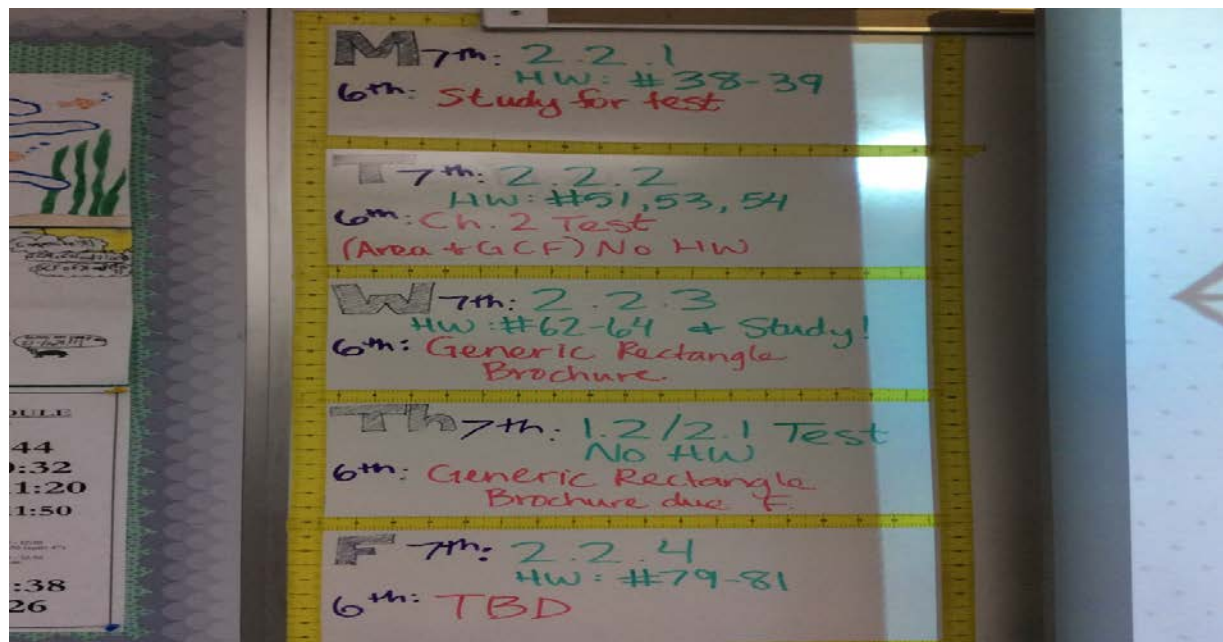 M 7th: 2.2.1
HW: #38-39
6th: Study for test
T 7th: 2.2.2
HW: #51, 53, 54
6th: Ch. 2 Test
(Area + GCF) No HW
W 7th: 2.2.3
HW: #62-64 + Study!
6th: Generic Rectangle
Brochure.
Th 7th: 1.2/2.1 Test
No HW
6th: Generic Rectangle
Brochure due F.
F 7th: 2.2.4
HW: #79-81
6th: TBD
DULE
44
:32
1:20
1:50
:38
26